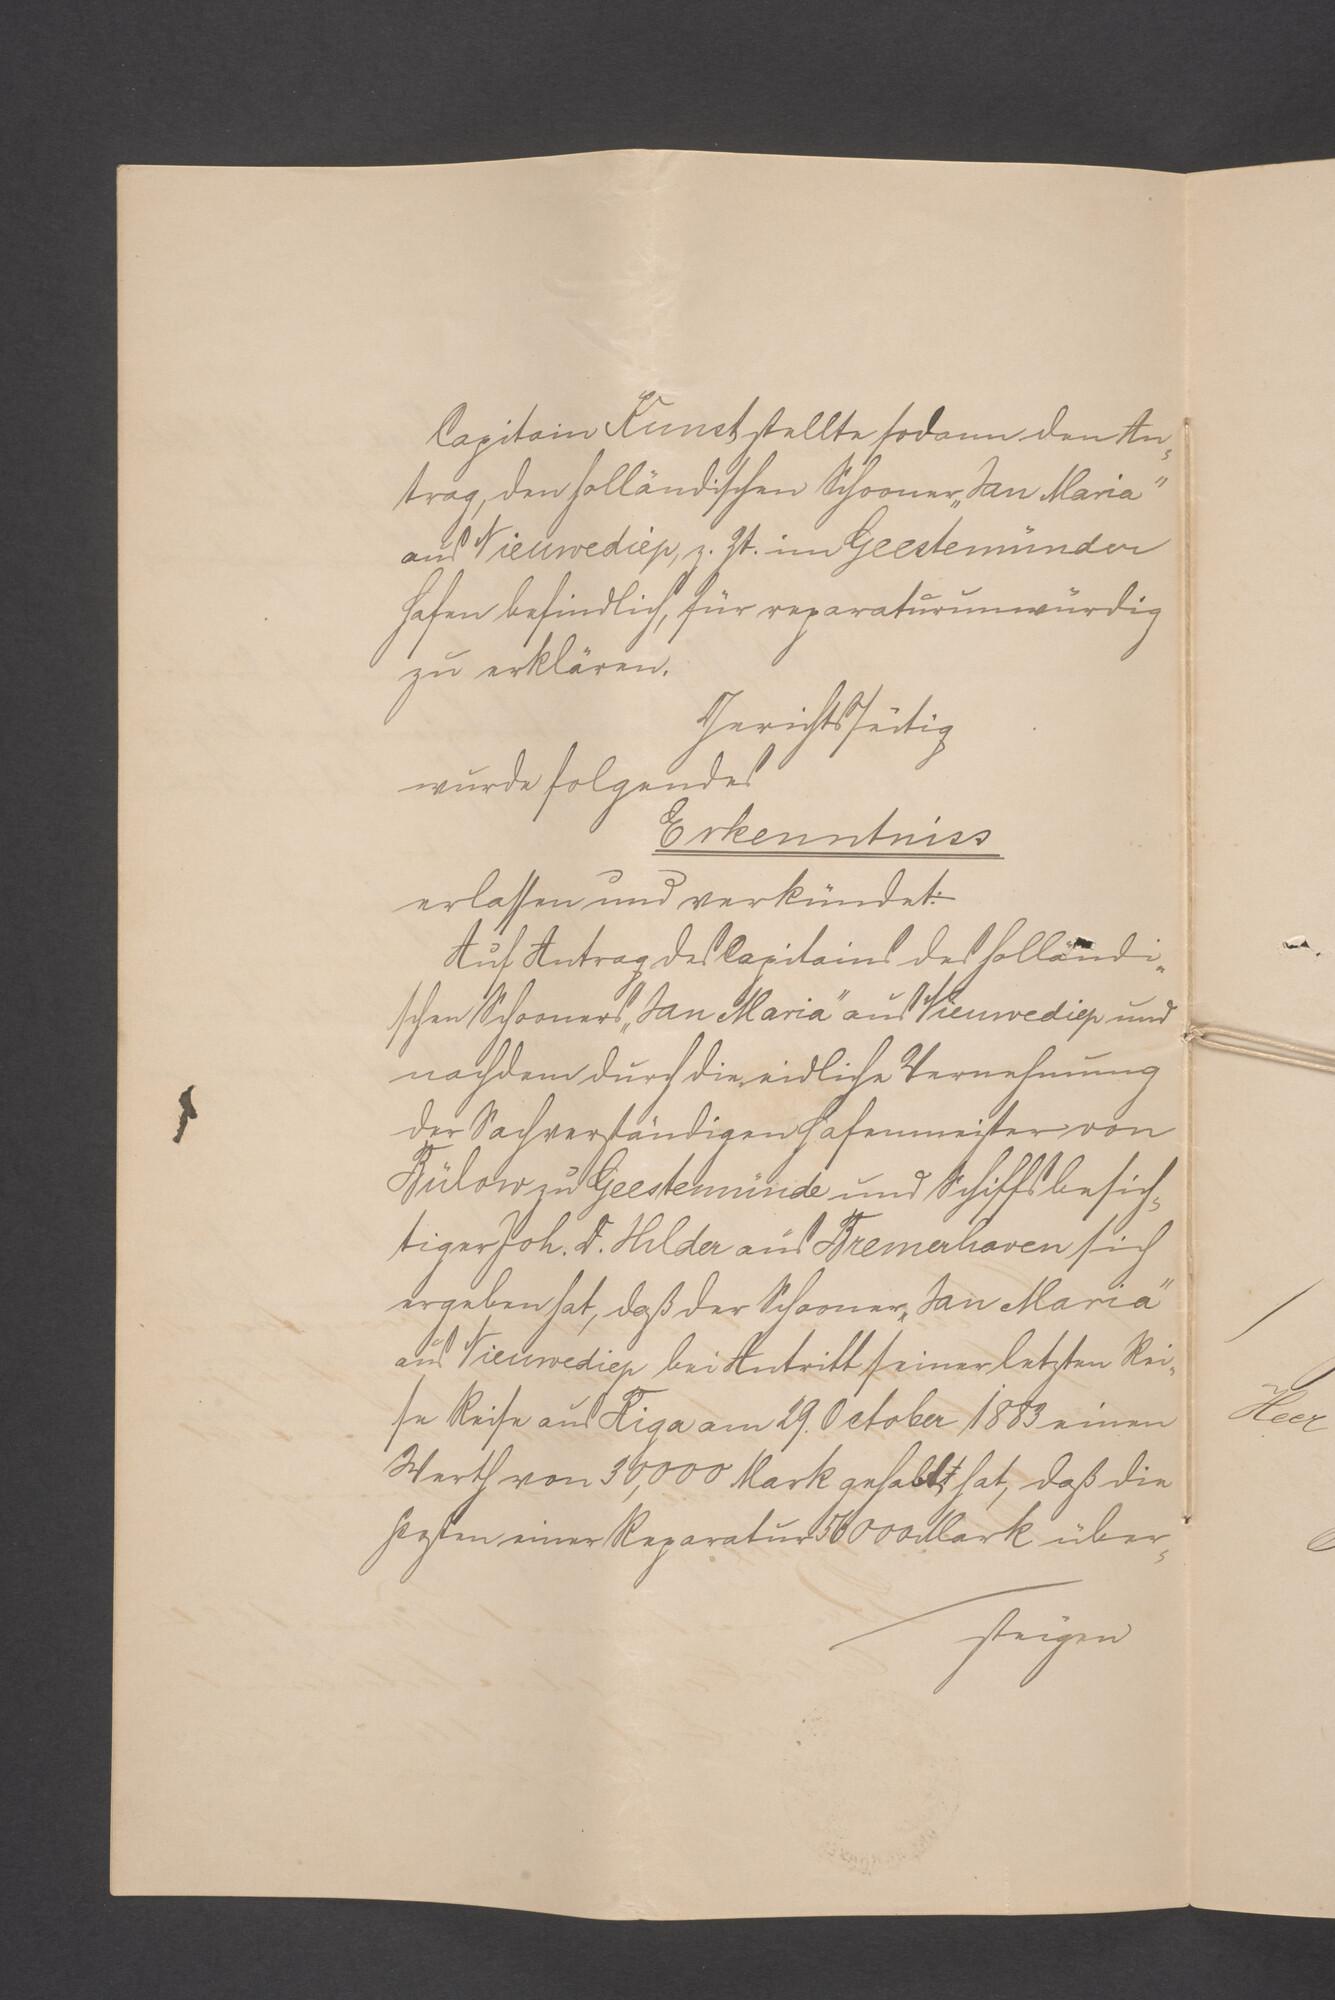 Capitain Kunst stellte sodann den An-
trag, den holländischen Schooner „Jan Maria"
aus Nieuwediep, z. Zt. im Geestemünder
Hafen befindlich, für reparaturunwürdig
zu erklären.
Gerichtsseitig
wurde folgendes
Erkenntniss
erlassen und verkündet:
Auf Antrag des Capitains des holländi-
schen Schooners „Jan Maria" aus Nieuwediep und
nachdem durch die eidliche Vernehmung
der Sachverständigen Hafenmeister von
Bülow zu Geestemünde und Schiffsbesich-
tiger Joh. D. Hilder aus Bremerhaven sich
ergeben hat, daß der Schooner „Jan Maria"
aus Nieuwediep bei Antritt seiner letzten Rei-
se Reise aus Riga am 29. October 1883 einen
Werth von 30,000 Mark gehabt hat, daß die
Kosten einer Reparatur Mark über-
steigen
Heer